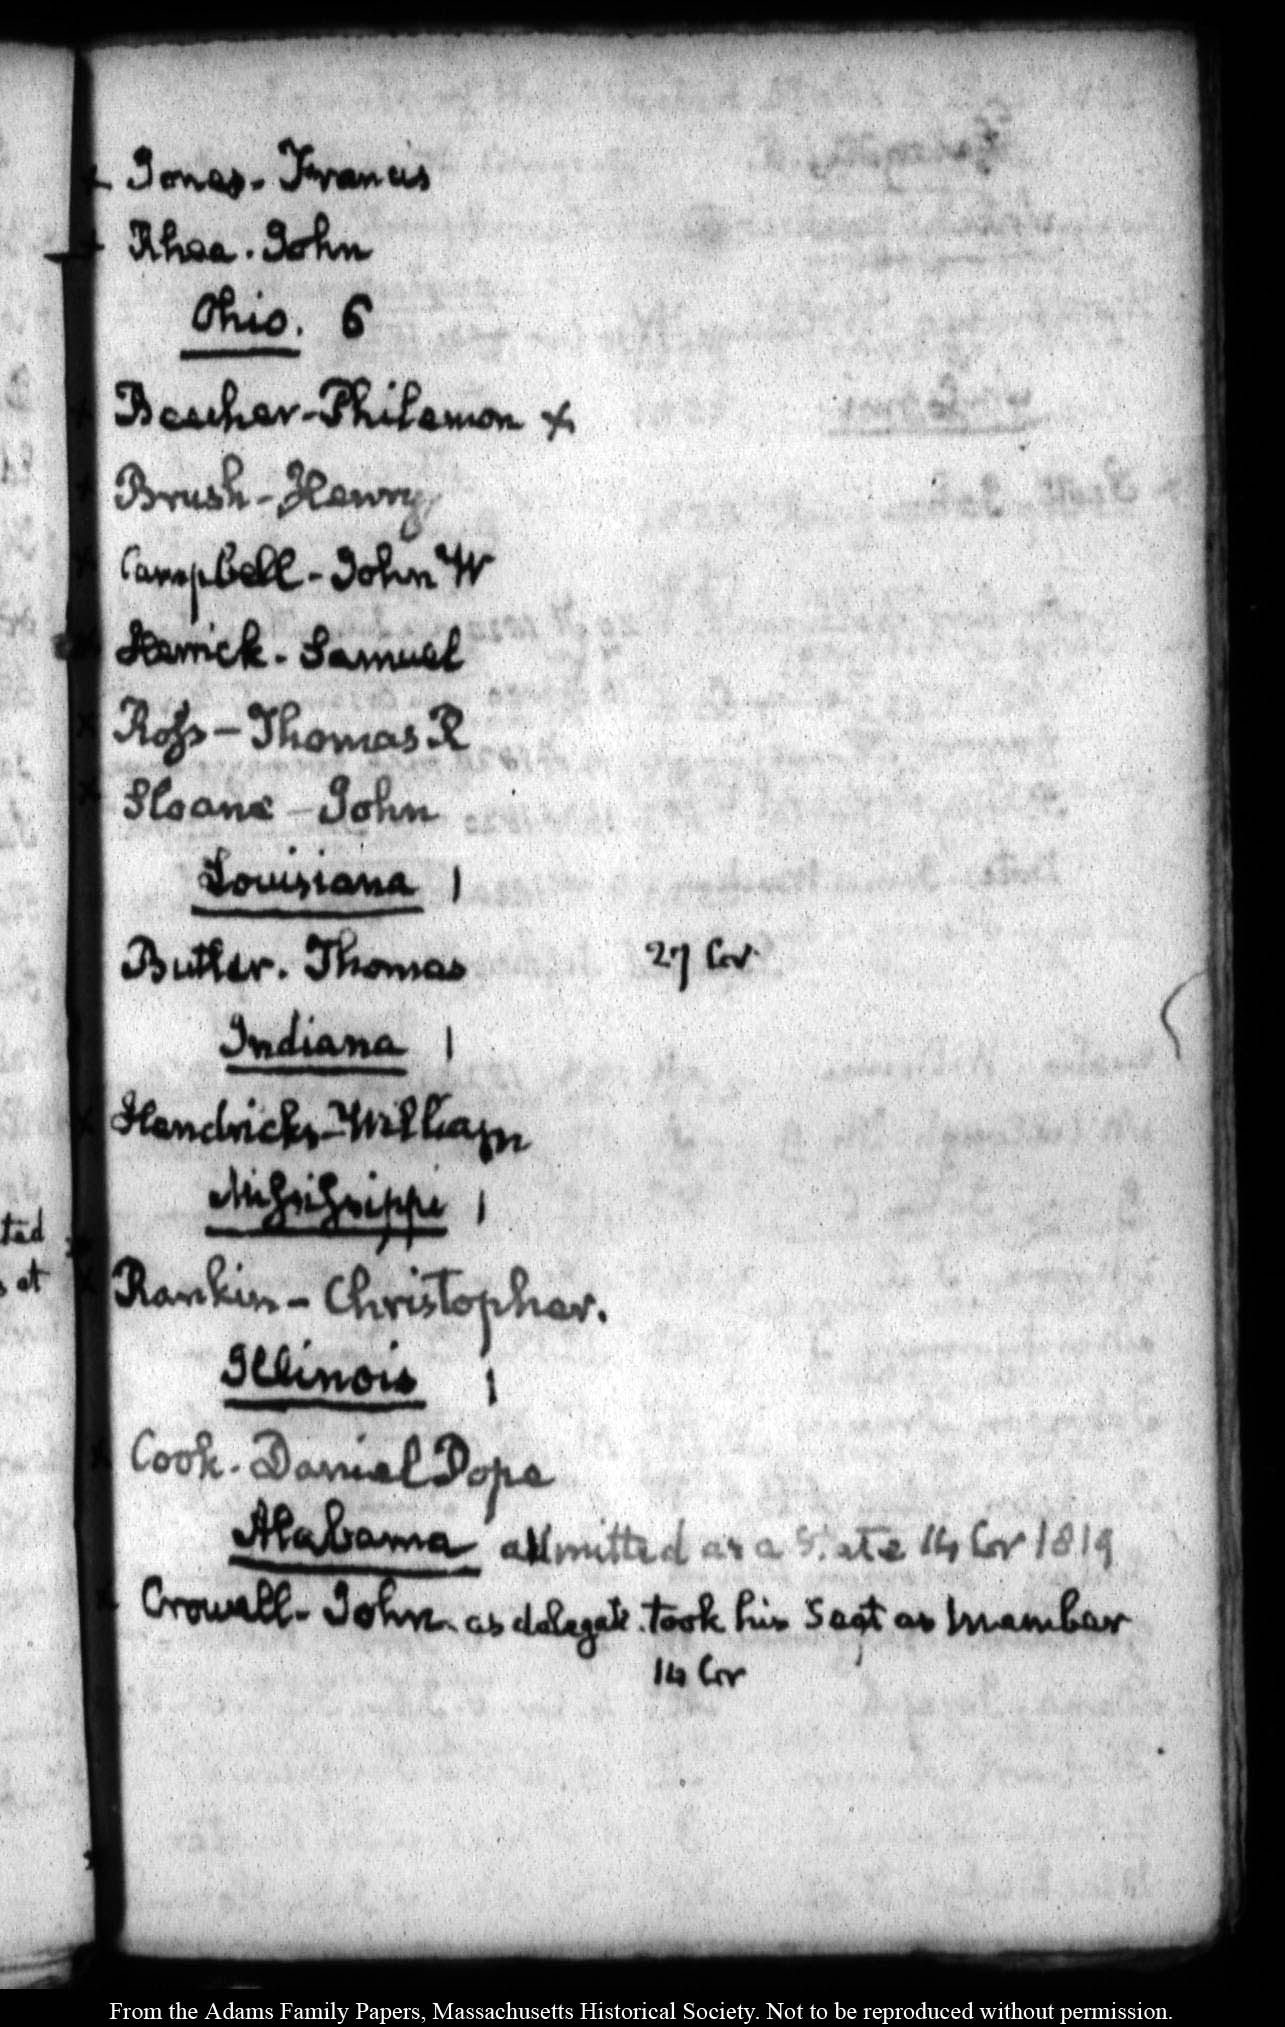 x Jones - Francis
x Rhea. John
Ohio. 6
x Beecher - Philemon x
x Brush - Henry
x Campbell - John W
x Herrick - Samuel
x Ross - Thomas R
x Sloane - John
Louisiana 1
Butler. Thomas 27 Cor
Indiana 1
x Hendricks - William
Mississippi 1
x Rankin - Christopher.
Illinois 1
x Cook. Daniel Pope
Alabama admitted as a State 14 Cor 1819
x Crowell - John. as delegate. took his Seat as Member
14 Cor
ted
s at
From the Adams Family Papers, Massachusetts Historical Society. Not to be reproduced without permission.